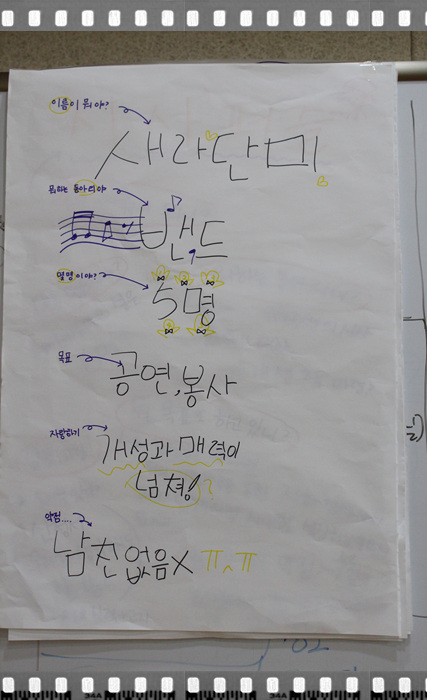 이름이 뭐야?
새라단미
뭐하는 동아리야
밴드
몇명이야?
5명
목표
공연, 봉사
자랑하기
개성과 매력이
넘쳐!
약점....
남친없음 X ㅠ^ㅠ